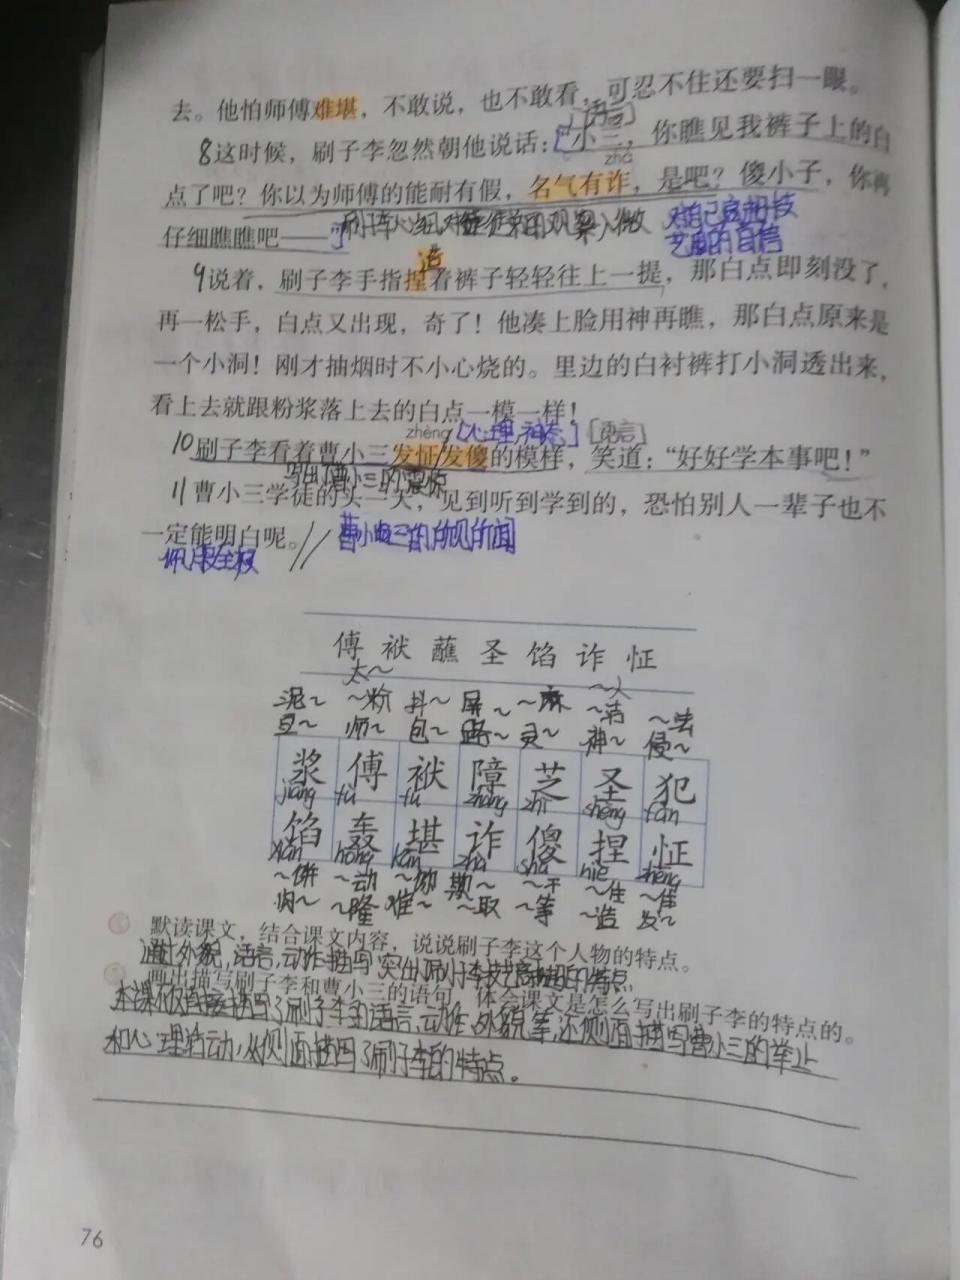 去。他怕师傅难堪，不敢说，也不敢看，可忍不住还要扫一眼。
[语言]
8这时候，刷子李忽然朝他说话：“小三，你瞧见我裤子上的白
zhà
点了吧？你以为师傅的能耐有假，名气有诈，是吧？傻小子，你再
仔细瞧瞧吧——”
对自己高超技
艺的自信
9说着，刷子李手指捏着裤子轻轻往上一提，那白点即刻没了，
再一松手，白点又出现，奇了！他凑上脸用神再瞧，那白点原来是
一个小洞！刚才抽烟时不小心烧的。里边的白衬裤打小洞透出来，
看上去就跟粉浆落上去的白点一模一样！
zhèng [心理,神态] [语言]
10刷子李看着曹小三发怔发傻的模样，笑道：“好好学本事吧！”
写出了曹小三的震惊
11曹小三学徒的头一天，见到听到学到的，恐怕别人一辈子也不
一定能明白呢。//
傅 袱 蘸 圣 馅 诈 怔
太～ ～人
泥～ ～粉 抖～ 屏～ ～麻 ～洁 ～法
豆～ 师～ 包～ 路～ 灵～ 神～ 侵～
浆 傅 袱 障 芝 圣 犯
jiāng fù fu zhàng zhī shèng fàn
馅 轰 堪 诈 傻 捏 怔
xiàn hōng kān zhà shǎ niē zhèng
～饼 ～动 欺～ ～干 ～住 ～住
肉～ ～隆 难～ ～取 ～等 ～造 发～
默读课文，结合课文内容，说说刷子李这个人物的特点。
通过外貌,语言,动作描写突出了刷子李技艺高超的特点
画出描写刷子李和曹小三的语句，体会课文是怎么写出刷子李的特点的。
本课不仅直接描写了刷子李的语言,动作,外貌等,还侧面描写曹小三的举止
和心理活动,从侧面描写了刷子李的特点。
76